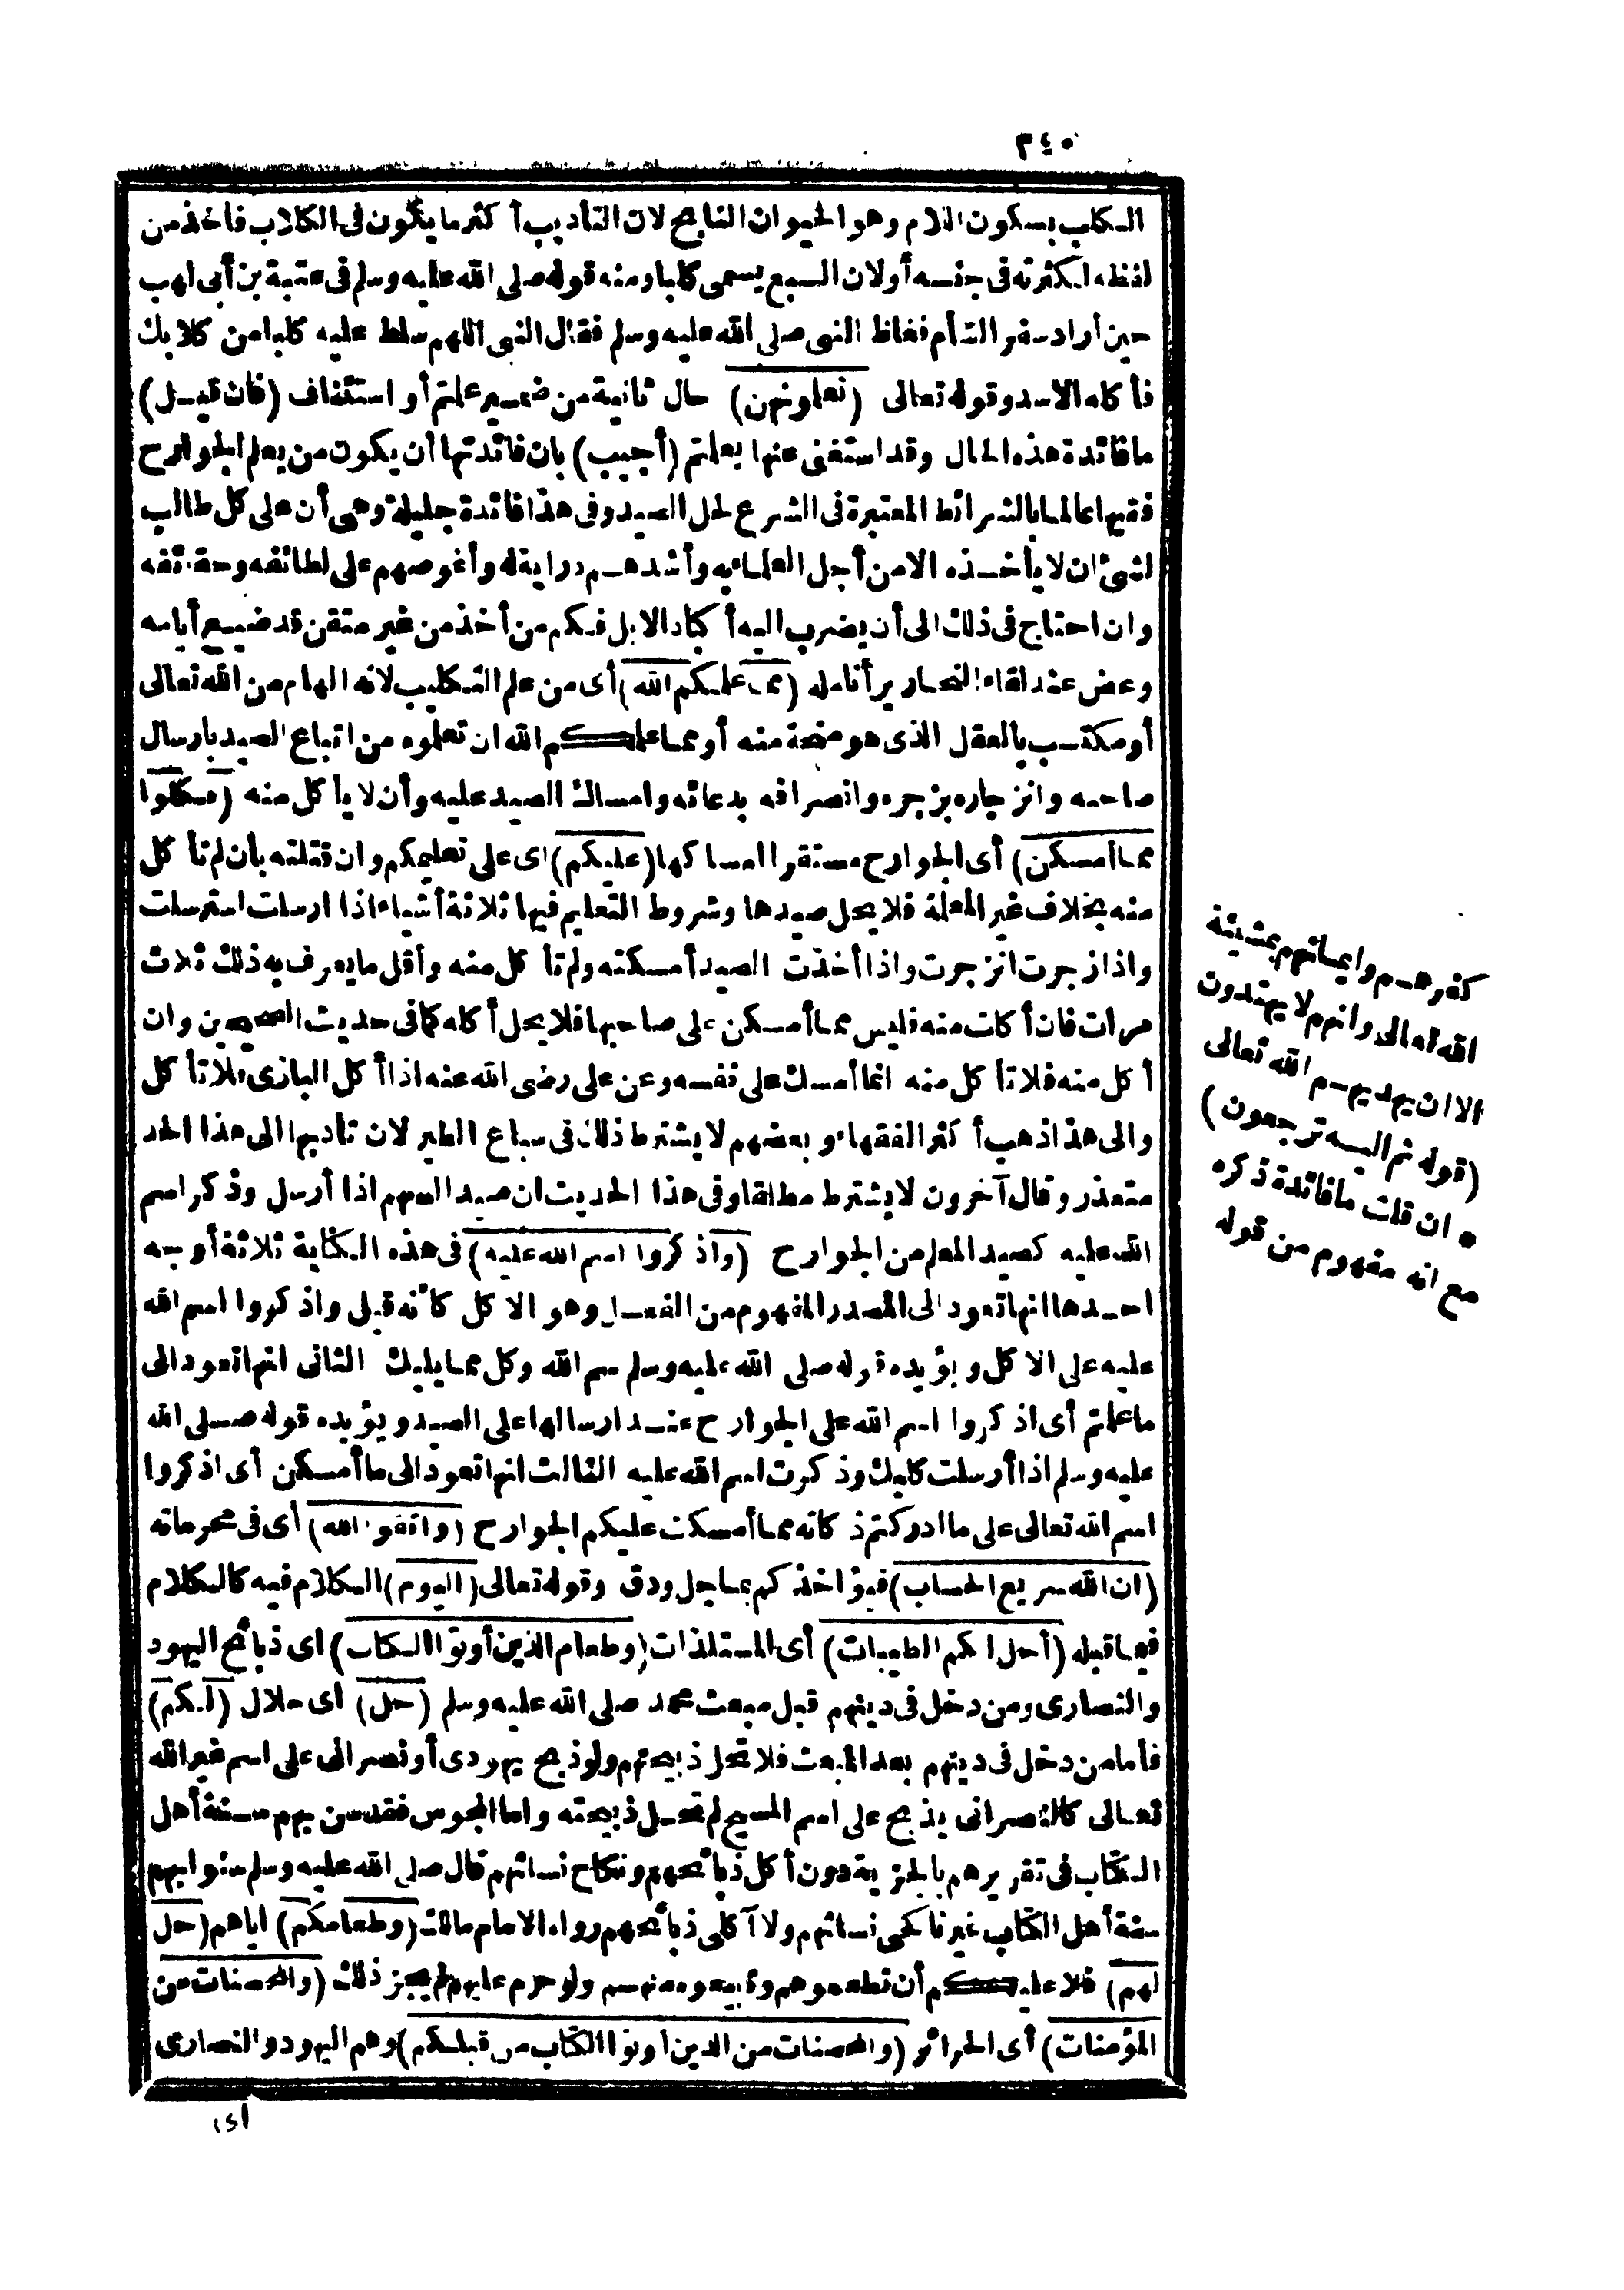 ٣٤٠
الكلب بسكون اللام وهو الحيوان النابح لان التأديب أكثر ما يكون فى الكلاب فأخذ من
لفظه لكثرته فى جنسه أو لان السبع يسمى كلبا ومنه قوله صلى الله عليه وسلم فى عتبة بن أبى لهب
حين أراد سفر الشأم فغاظ النبى صلى الله عليه وسلم فقال النبى اللهم سلط عليه كلبا من كلابك
فأكله الاسد وقوله تعالى (تعلمونهن) حال ثانية من ضمير علمتم أو استئناف (فان قيل)
ما فائدة هذه الحال وقد استغنى عنها بعلمتم (أجيب) بان فائدتها أن يكون من يعلم الجوارح
فقيها عالما بالشرائط المعتبرة فى الشرع لحل الصيد وفى هذا فائدة جليلة وهى أن على كل طالب
لشئ ان لا يأخذه الا من أجل العلماء به وأشدهم دراية له وأغوصهم على لطائفه وحقائقه
وان احتاج فى ذلك الى أن يضرب اليه أكباد الابل فكم من أخذ من غير متقن قد ضيع أيامه
وعض عند لقاء النحارير أنامله (مما علمكم الله) أى من علم التكليب لانه الهام من الله تعالى
أو مكتسب بالعقل الذى هو منحة منه أو مما علمكم الله ان تعلموه من اتباع الصيد بارسال
صاحبه وانزجاره بزجره وانصرافه بدعائه وامساك الصيد عليه وأن لا يأكل منه (فكلوا
مما أمسكن) أى الجوارح مستقرا امساكها (عليكم) اى على تعليمكم وان قتلته بأن لم تأكل
منه بخلاف غير المعلمة فلا يحل صيدها وشروط التعليم فيها ثلاثة أشياء اذا ارسلت استرسلت
واذا زجرت انزجرت واذا أخذت الصيد أمسكته ولم تأكل منه وأقل ما يعرف به ذلك ثلاث
مرات فان أكلت منه فليس مما أمسكن على صاحبها فلا يحل أكله كما فى حديث الصحيحين وان
أكل منه فلا تأكل منه انما أمسك على نفسه وعن على رضى الله عنه اذا أكل البازى فلا تأكل
والى هذا ذهب أكثر الفقهاء وبعضهم لا يشترط ذلك فى سباع الطير لان تأديبها الى هذا الحد
متعذر وقال آخرون لا يشترط مطلقا وفى هذا الحديث ان صيد السهم اذا أرسل وذكر اسم
الله عليه كصيد المعلم من الجوارح (واذكروا اسم الله عليه) فى هذه الكناية ثلاثة أوجه
احدها انها تعود الى المصدر المفهوم من الفعل وهو الاكل كأنه قيل واذكروا اسم الله
عليه على الاكل ويؤيده قوله صلى الله عليه وسلم سم الله وكل مما يليك الثانى انها تعود الى
ما علمتم أى اذكروا اسم الله على الجوارح عند ارسالها على الصيد ويؤيده قوله صلى الله
عليه وسلم اذا أرسلت كلبك وذكرت اسم الله عليه الثالث انها تعود الى ما أمسكن أى اذكروا
اسم الله تعالى على ما ادركتم ذكاته مما أمسكت عليكم الجوارح (واتقوا الله) أى فى محرماته
(ان الله سريع الحساب) فيؤاخذكم بما جل ودق وقوله تعالى (اليوم) الكلام فيه كالكلام
فيما قبله (أحل لكم الطيبات) أى المستلذات (وطعام الذين أوتوا الكتاب) اى ذبائح اليهود
والنصارى ومن دخل فى دينهم قبل مبعث محمد صلى الله عليه وسلم (حل) اى حلال (لكم)
فأما من دخل فى دينهم بعد المبعث فلا تحل ذبيحتهم ولو ذبح يهودى أو نصرانى على اسم غير الله
تعالى كالنصرانى يذبح على اسم المسيح لم تحل ذبيحته واما المجوس فقد سن بهم سنة أهل
الكتاب فى تقريرهم بالجزية دون أكل ذبائحهم ونكاح نسائهم قال صلى الله عليه وسلم سنوا بهم
سنة أهل الكتاب غير ناكحى نسائهم ولا آكلى ذبائحهم رواه الامام مالك (وطعامكم) اياهم (حل
لهم) فلا عليكم أن تطعموهم وتبيعوه منهم ولو حرم عليهم لم يجز ذلك (والمحصنات من
المؤمنات) أى الحرائر (والمحصنات من الذين أوتوا الكتاب من قبلكم) وهم اليهود والنصارى
اى
كفرهم وايمانهم بمشيئة
الله تعالى وانهم لا يهتدون
الا ان يهديهم الله تعالى
(قوله ثم اليه ترجعون)
* ان قلت ما فائدة ذكره
مع انه مفهوم من قوله